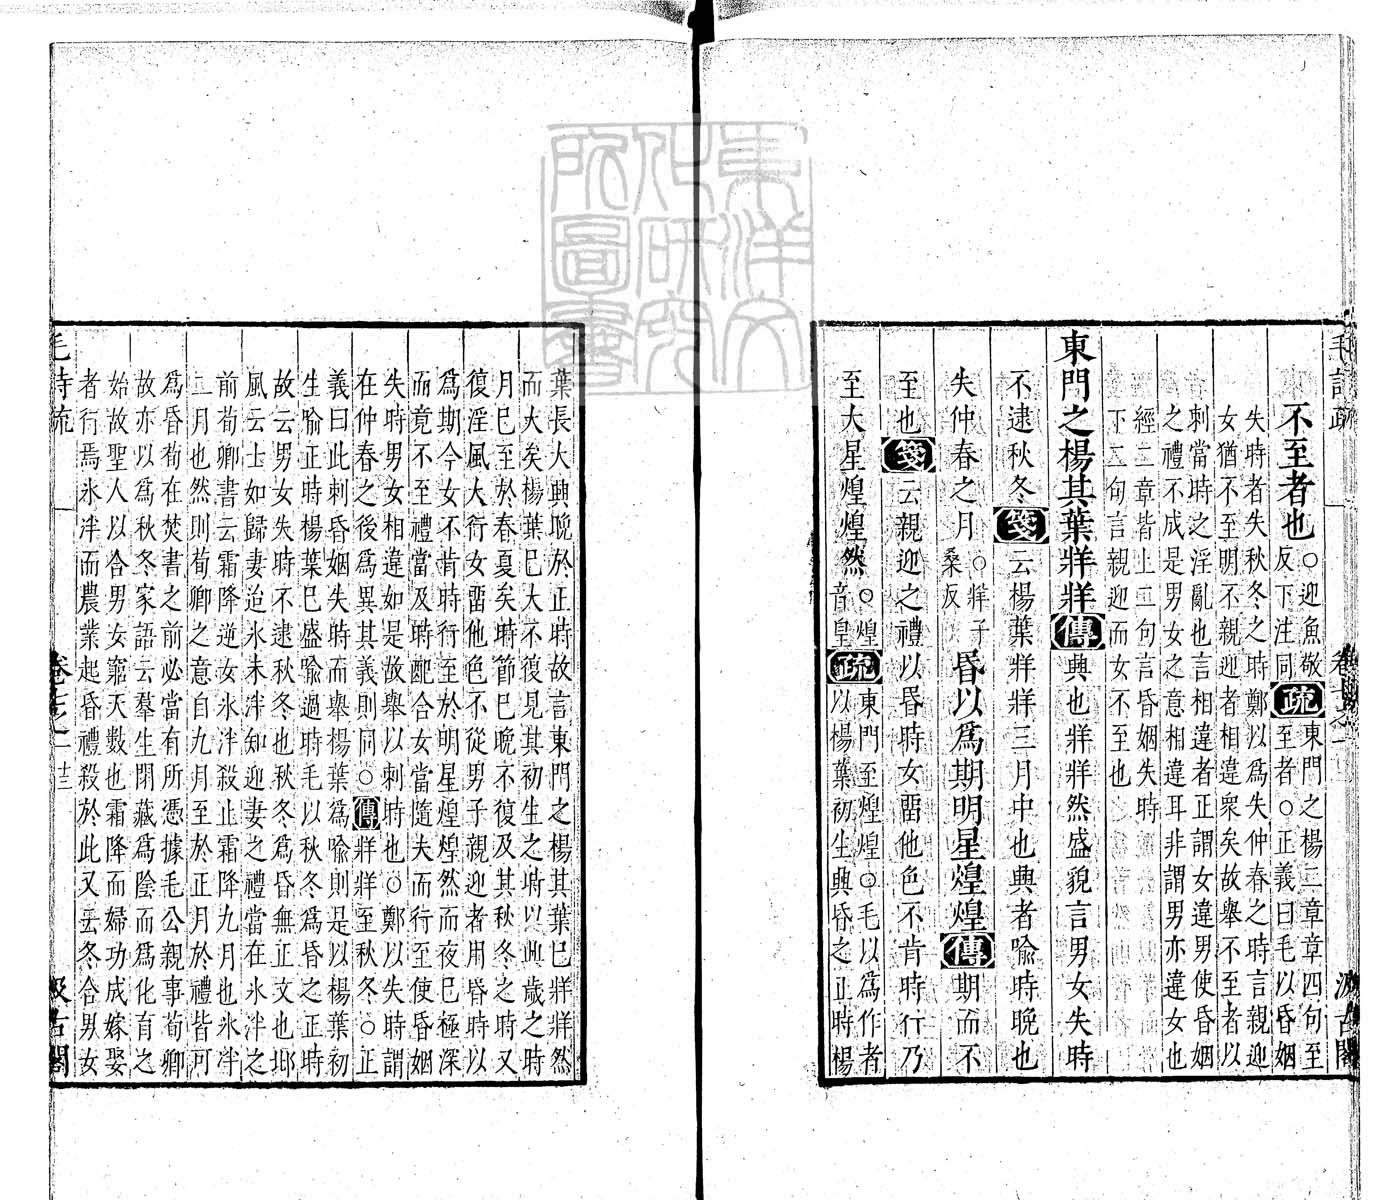 毛詩疏
卷七之一
汲古閣
不至者也
○迎魚敬
反下注同
疏
東門之楊二章章四句至
至者○正義曰毛以昏姻
失時者失秋冬之時鄭以為失仲春之時言親迎
女猶不至明不親迎者相違衆矣故舉不至者以
刺當時之淫亂也言相違者正謂女違男使昏姻
之禮不成是男女之意相違耳非謂男亦違女也
經二章皆上二句言昏姻失時
下二句言親迎而女不至也
東門之楊其葉牂牂傳興也牂牂然盛貌言男女失時
不逮秋冬箋云楊葉牂牂三月中也興者喻時晚也
失仲春之月
○牂子
桑反
昏以爲期明星煌煌傳期而不
至也箋云親迎之禮以昏時女畱他色不肯時行乃
至大星煌煌然
○煌
音皇
疏
東門至煌煌○毛以爲作者
以楊葉初生興昏之正時楊
葉長大興晚於正時故言東門之楊其葉已牂牂然
而大矣楊葉已大不復見其初生之時以興歲之時
月已至於春夏矣時節已晚不復及其秋冬之時又
復淫風大行女畱他色不從男子親迎者用昏時以
爲期今女不肯時行至於明星煌煌然而夜已極深
而竟不至禮當及時配合女當隨夫而行至使昏姻
失時男女相違如是故舉以刺時也○鄭以失時謂
在仲春之後爲異其義則同○傳牂牂至秋冬○正
義曰此刺昏姻失時而舉楊葉爲喻則是以楊葉初
生喻正時楊葉已盛喻過時毛以秋冬爲昏之正時
故云男女失時不逮秋冬也秋冬爲昏無正文也邶
風云士如歸妻迨冰未泮知迎妻之禮當在冰泮之
前荀卿書云霜降逆女冰泮殺止霜降九月也冰泮
二月也然則荀卿之意自九月至於正月於禮皆可
爲昏荀在焚書之前必當有所憑據毛公親事荀卿
故亦以爲秋冬家語云羣生閉藏爲陰而爲化育之
始故聖人以合男女窮天數也霜降而婦功成嫁娶
者行焉冰泮而農業起昏禮殺於此又云冬合男女
毛詩疏
卷七之一
十三
汲古閣
東洋文
化研究
所圖書